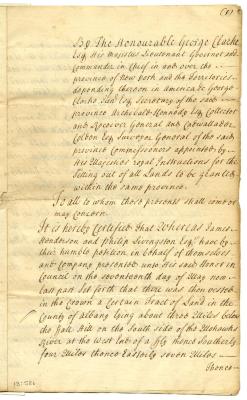 (1)
By The Honourable George Clarke
Esq. His Majesties Lieutenant Governor and
Commander in Chief in and over the
province of New York and the Territories
depending thereon in America & George
Clarke Jun. Esq. Secretary of the said
province Archibald Kennedy Esq. Collector
and Receiver General and Cadwallader
Colden Esq. Surveyor General of the said
province Commissioners appointed by
His Majesties royal Instructions for the
Setting out of all Lands to be granted
within the same province
To all to whom these presents shall come or
may concern
It is hereby Certified That Whereas James
Henderson and Philip Livingston Esq. have by
their humble petition in behalf of themselves
and Company presented unto His said Honor in
Council on the seventeenth day of May now
last past Set forth that there was then vested
in the Crown a Certain Tract of Land in the
County of albany Lying about three Miles below
the Falls Hill on the South side of the Mohawks
River at the West End of a fly thence Southerly
four Miles thence Easterly seven Miles
Thence